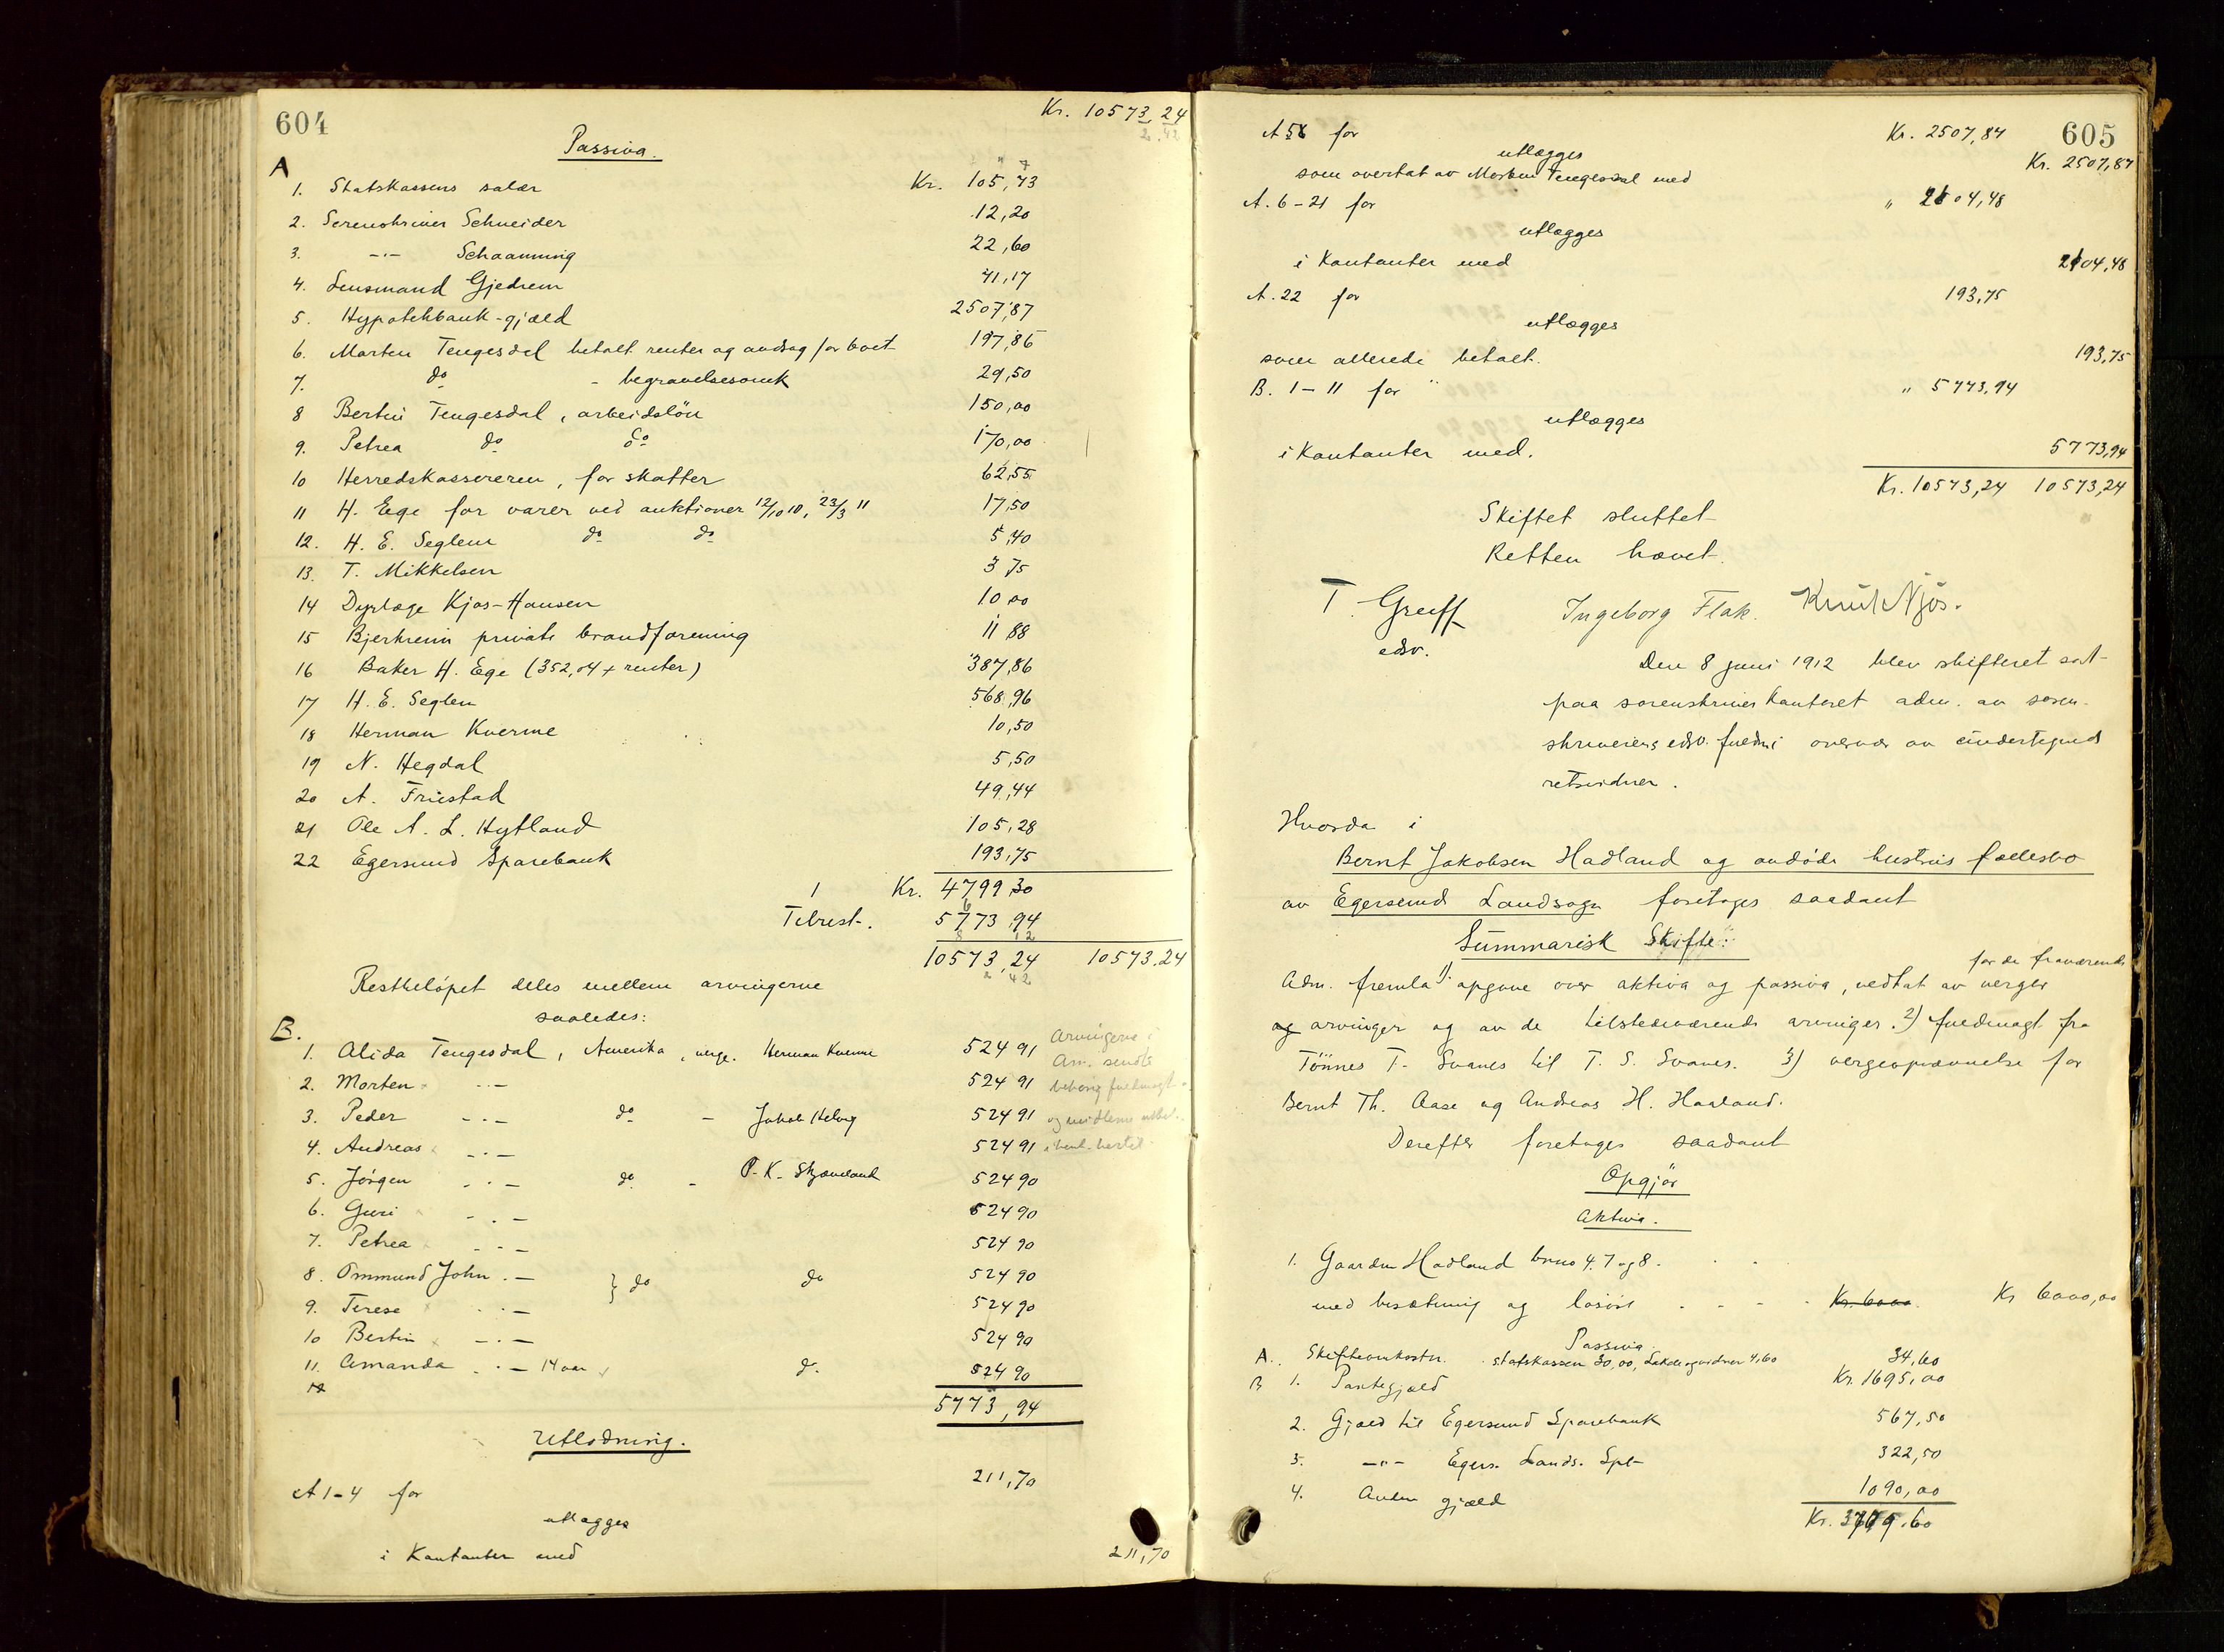 604
Kr. 10573,24
Passiva.
A
1. Statskassens salær Kr. 105,73
2. Sorenskriver Schneider 12,20
3. -"- Schaanning 22,60
4. Lensmand Gjedrem 41,17
5. Hypotekbank-gjæld 2507,87
6. Morten Tengesdal betalt renter og avdrag for boet 197,86
7. do - begravelsesomk 29,50
8 Bertin Tengesdal, arbeidsløn 150,00
9. Petrea do do 170,00
10 Herredskassereren, for skatter 62,55
11 H. Ege for varer ved auktioner 12/10 10, 23/3 11 17,50
12. H. E. Seglem do do 5,40
13. T. Mikkelsen 3 75
14 Dyrlæge Kjos-Hansen 10 00
15 Bjerkreim private brandforening 11 88
16 Baker H. Ege (352,04 + renter) 387,86
17 H. E. Seglem 568,96
18 Herman Kverme 10,50
19 N. Hegdal 5,50
20 A. Friestad 49,44
21 Ole A. L. Hytland 105,28
22 Egersund Sparebank 193,75
Kr. 4799 30
Tilrest. 5773,94
10573,24 10573.24
Restbeløpet deles mellem arvingerne
saaledes:
B.
1. Alida Tengesdal, Amerika, verge. Herman Kverme 524 91
2. Morten -"- 524 91
3. Peder -"- do - Jakob Helvig 524 91
4. Andreas -"- 524 91
5. Jørgen -"- do - P. K. Skjæveland 524 90
6. Guri -"- 524 90
7. Petrea -"- 524 90
8. Ommund John -"- } do do 524 90
9. Terese -"- 524 90
10 Bertin -"- 524 90
11. Amanda -"- 14 aar do 524 90
12
5773,94
Arvingerne i
Am. sendte
behørig fuldmagt
Utlodning.
A 1-4 for 211,70
utlægges
i Kontanter med 211,70
605
A 5 for Kr. 2507,84
utlægges
som overtat av Morten Tengesdal med Kr. 2507,87
A. 6-21 for " 2104,48
utlægges
i Kontanter med 2104,48
A. 22 for 193,75
utlægges
som allerede betalt. 193,75
B. 1-11 for " 5773,94
utlægges
i Kontanter med. 5773,94
Kr. 10573,24 10573,24
Skiftet sluttet
Retten hævet.
T. Greiff Ingeborg Flak. Knut Njøs.
edsv.
Den 8 juni 1912 blev skifteret sat
paa sorenskriverkontoret adm. av soren-
skriverens edsv. fuldm i overvær av undertegnede
retsvidner.
Hvorda i
Bernt Jakobsen Hadland og avdøde hustrus fællesbo
av Egersund Landsogn foretages saadant
Summarisk Skifte:
Adm. fremla 1) opgave over aktiva og passiva, vedtat av verger for de fraværende
og arvinger og av de tilstedeværende arvinger. 2) fuldmagt fra
Tönnes T. Svanes til T. S. Svanes. 3) vergeopnævnelse for
Bernt Th. Aase og Andreas H. Haaland.
Derefter foretages saadant
Opgjør
Aktiva.
1. Gaarden Hadland bruno 4. 7 og 8.
med besætning og løsøre Kr. 6000. Kr 6000,00
Passiva.
A. Skifteomkostn. Statskassen 30,00, Lokale og vidner 4,60 34,60
B 1. Pantegjæld Kr. 1695,00
2. Gjæld til Egersund Sparebank 567,50
3. -"- Egers. Lands. Spb 322,50
4. Anden gjæld 1090,00
Kr. 3709.60